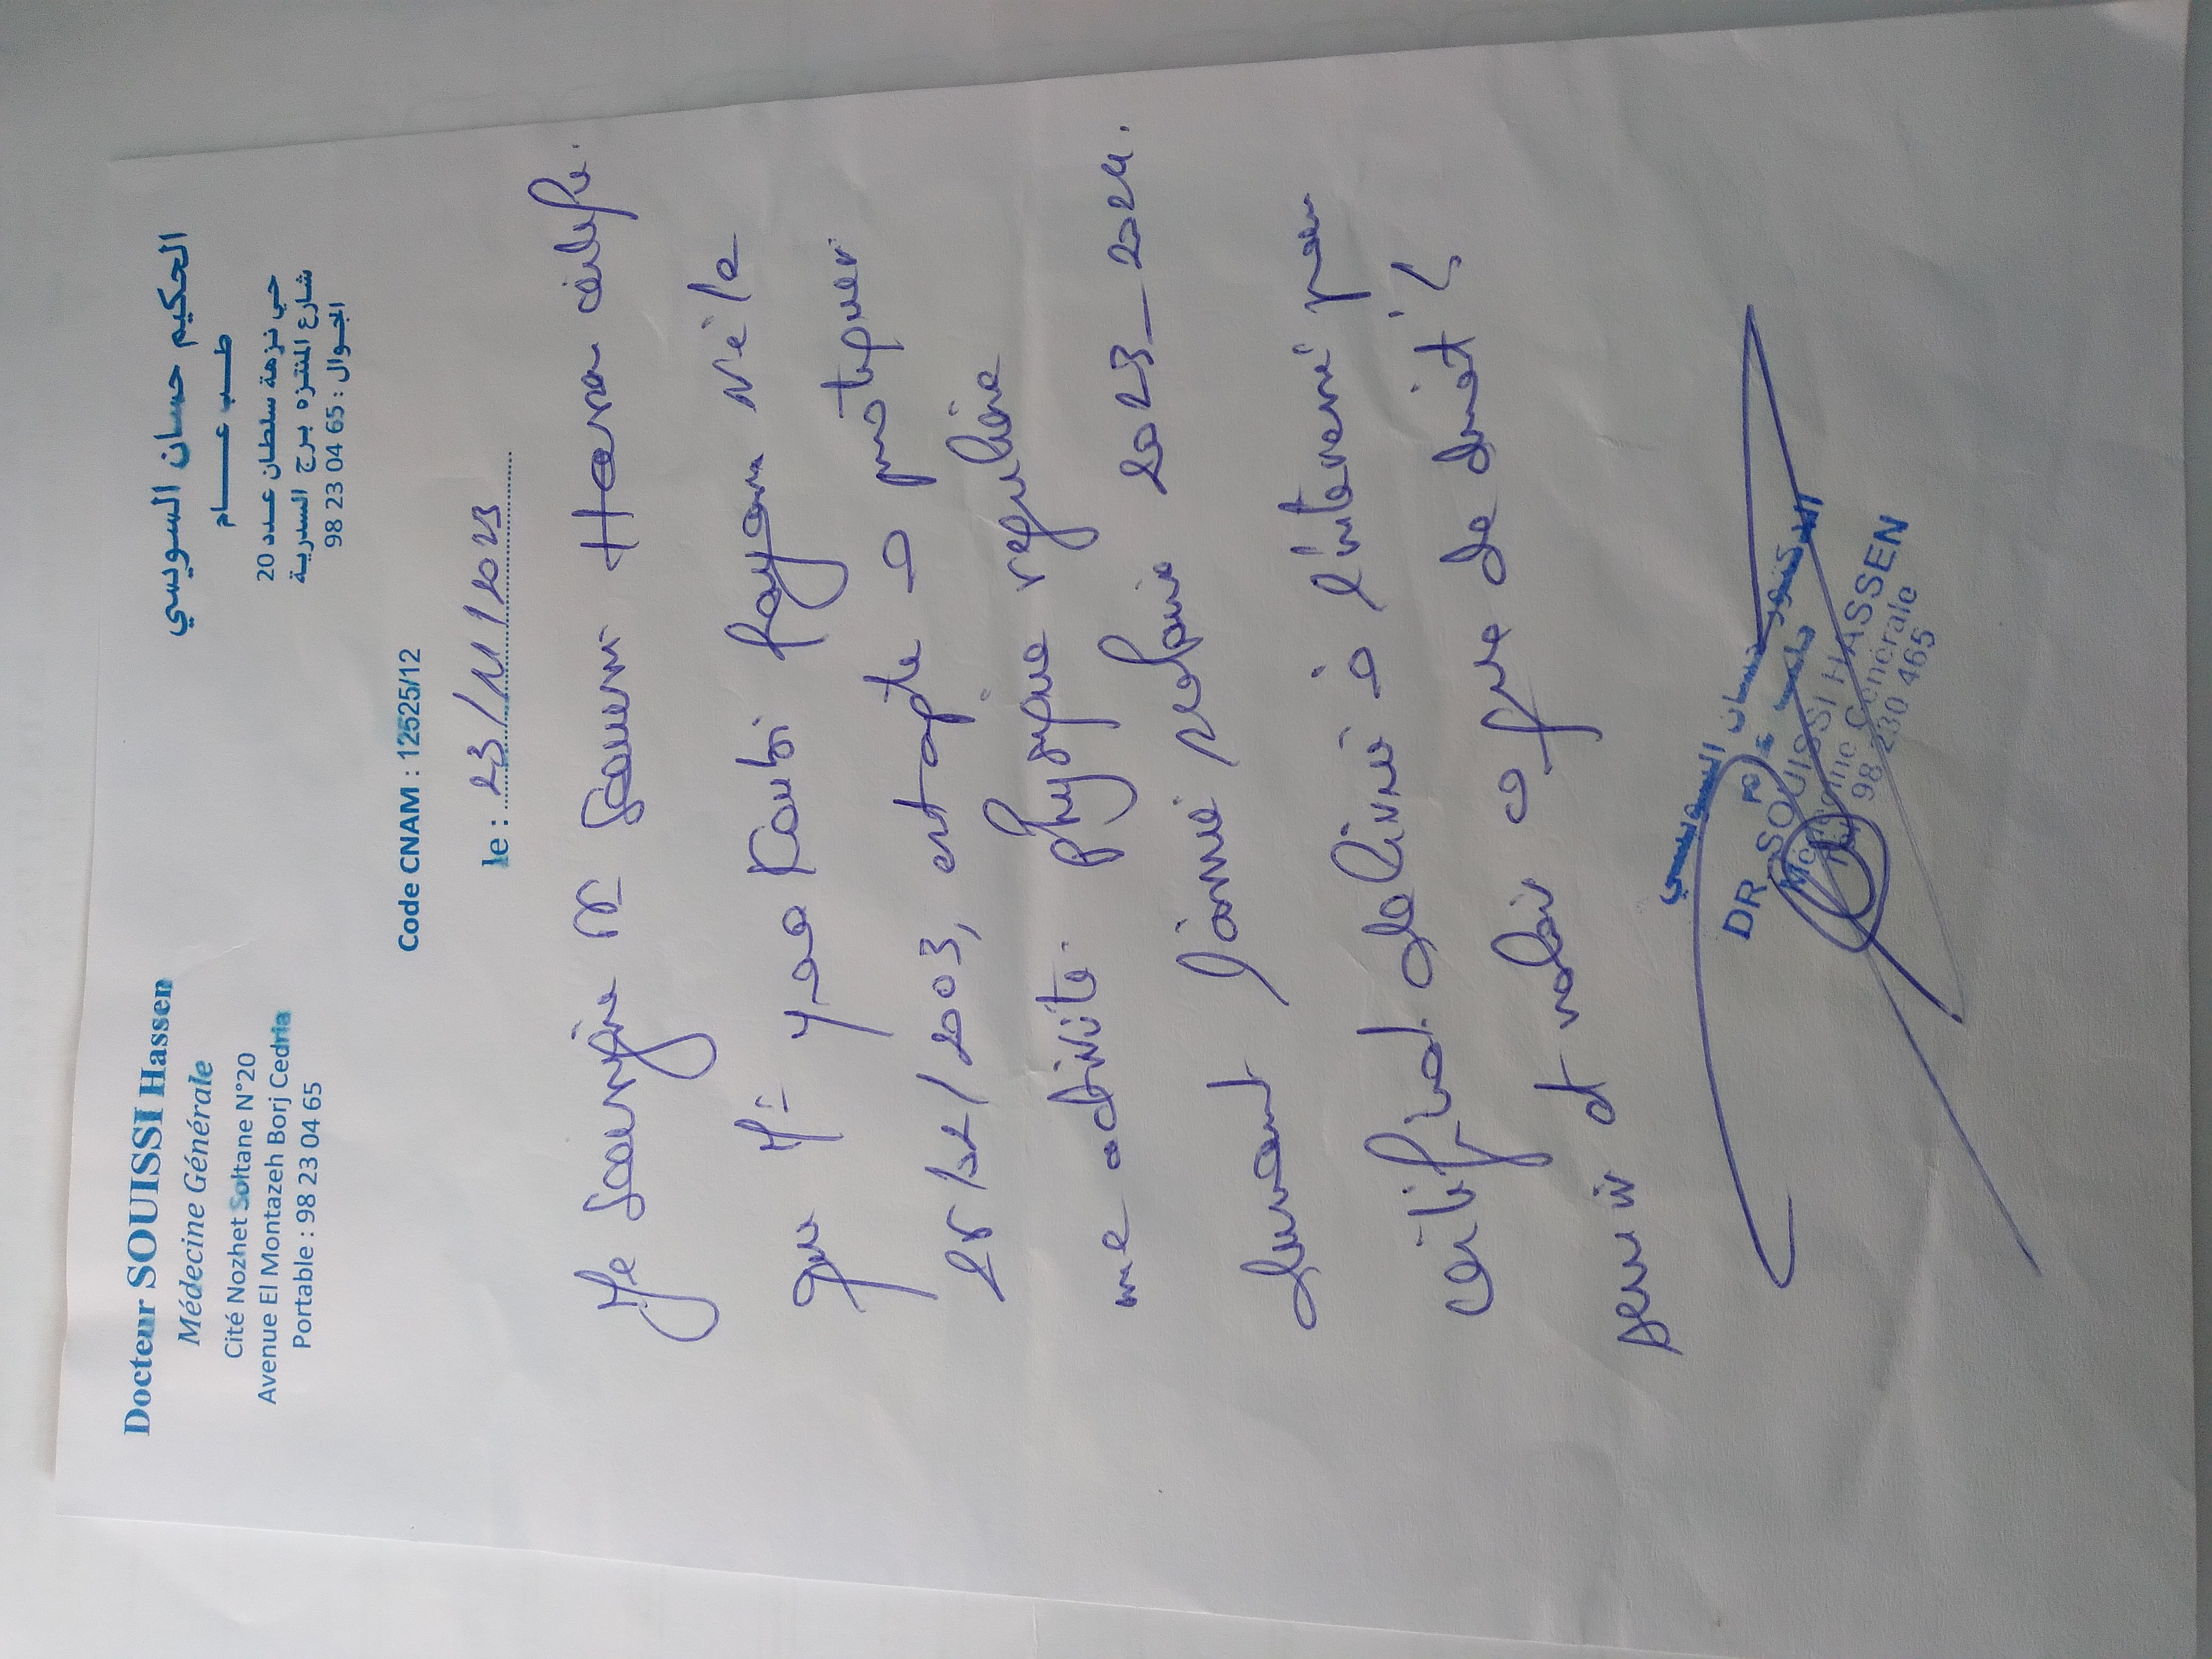 Docteur SOUISSI Hassen
Médecine Générale
Cité Nozhet Soltane N°20
Avenue El Montazeh Borj Cedria
Portable : 98 23 04 65
الحكيم حسان السويسي
طب عام
حي نزهة سلطان عدد 20
شارع المنتزه برج السدرية
الجوال : 98 23 04 65
Code CNAM : 12525/12
le : 23/11/2023
Je soussigné Dr Souissi Hassen certifie
que Mr Rayen né le
/02/2003, est apte à pratiquer
une activité physique régulière
durant l'année scolaire 2023_2024.
certificat délivré à l'intéressé pour
servir et valoir ce que de droit
الدكتور حسان السويسي
طب عام
DR. SOUISSI HASSEN
Médecine Générale
98 230 465